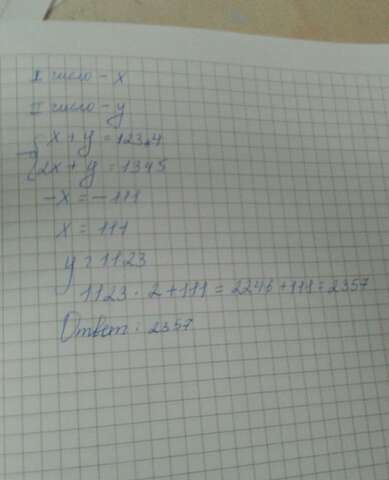 I число - x
II число - y
x + y = 1234
2x + y = 1345
-x = -111
x = 111
y = 1123
1123 · 2 + 111 = 2246 + 111 = 2357
Ответ: 2357